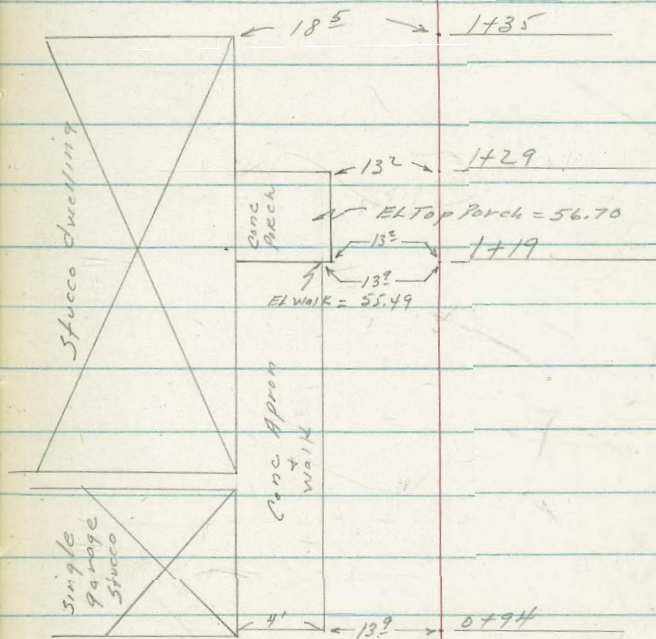 18 5
1+35
13 2
1+29
Stucco dwelling
Conc
Porch
El Top Porch = 56.70
13 2
1+19
13 9
El walk = 55.49
Conc Apron
+
walk
Single
garage
Stucco
4'
13 9
0+94